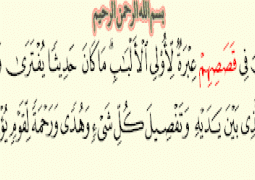 بسم الله الرحمن الرحيم
فِى قَصَصِهِمْ عِبْرَةٌ لِّأُوْلِى ٱلْأَلْبَٰبِ مَا كَانَ حَدِيثًا يُفْتَرَىٰ
بَيْنَ يَدَيْهِ وَتَفْصِيلَ كُلِّ شَىْءٍ وَهُدًى وَرَحْمَةً لِّقَوْمٍ